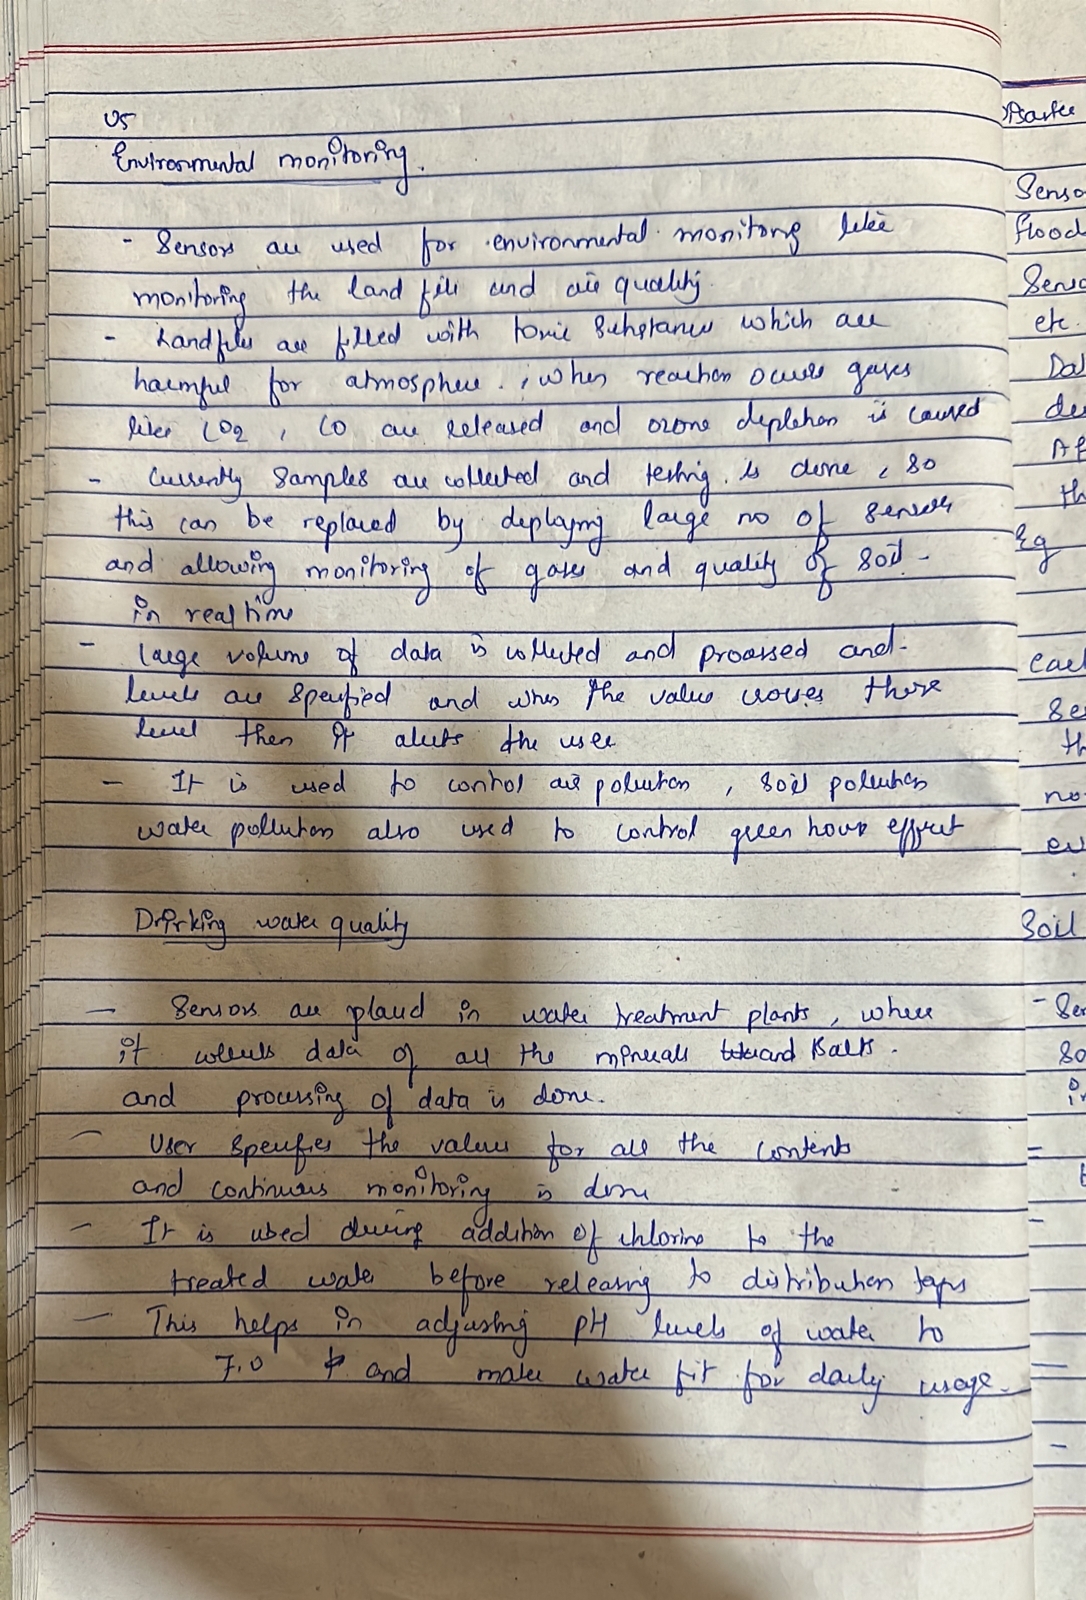 U5
Environmental monitoring.
- Sensors are used for environmental monitorng like
monitoring the land file and air quality.
- Landfiles are filled with toxic substances which are
harmful for atmosphere. , when reaction occurs gases
like CO2 , CO are released and ozone depletion is caused
- Currently samples are collected and testing is done , so
this can be replaced by deploying large no of sensors
and allowing monitoring of gases and quality of soil -
in real time
- large volume of data is collected and processed and-
levels are specified and when the value crosses these
level then it alerts the user
- It is used to control air polution , soil polution
water pollution also used to control green house effect
Drinking water quality
- Sensors are placed in water treatment plants , where
it collects data of all the minerals and salts .
and processing of data is done.
- User specifies the values for all the contents
and continuous monitoring is done
- It is used during addition of chlorine to the
treated water before releasing to distribution taps
- This helps in adjusting pH levels of water to
7.0 and make water fit for daily usage.
Senso
flood
Senso
etc.
Dat
des
Af
th
Eg
eac
se
th
no
ev
Soil
- Sen
so
in
=
-
-